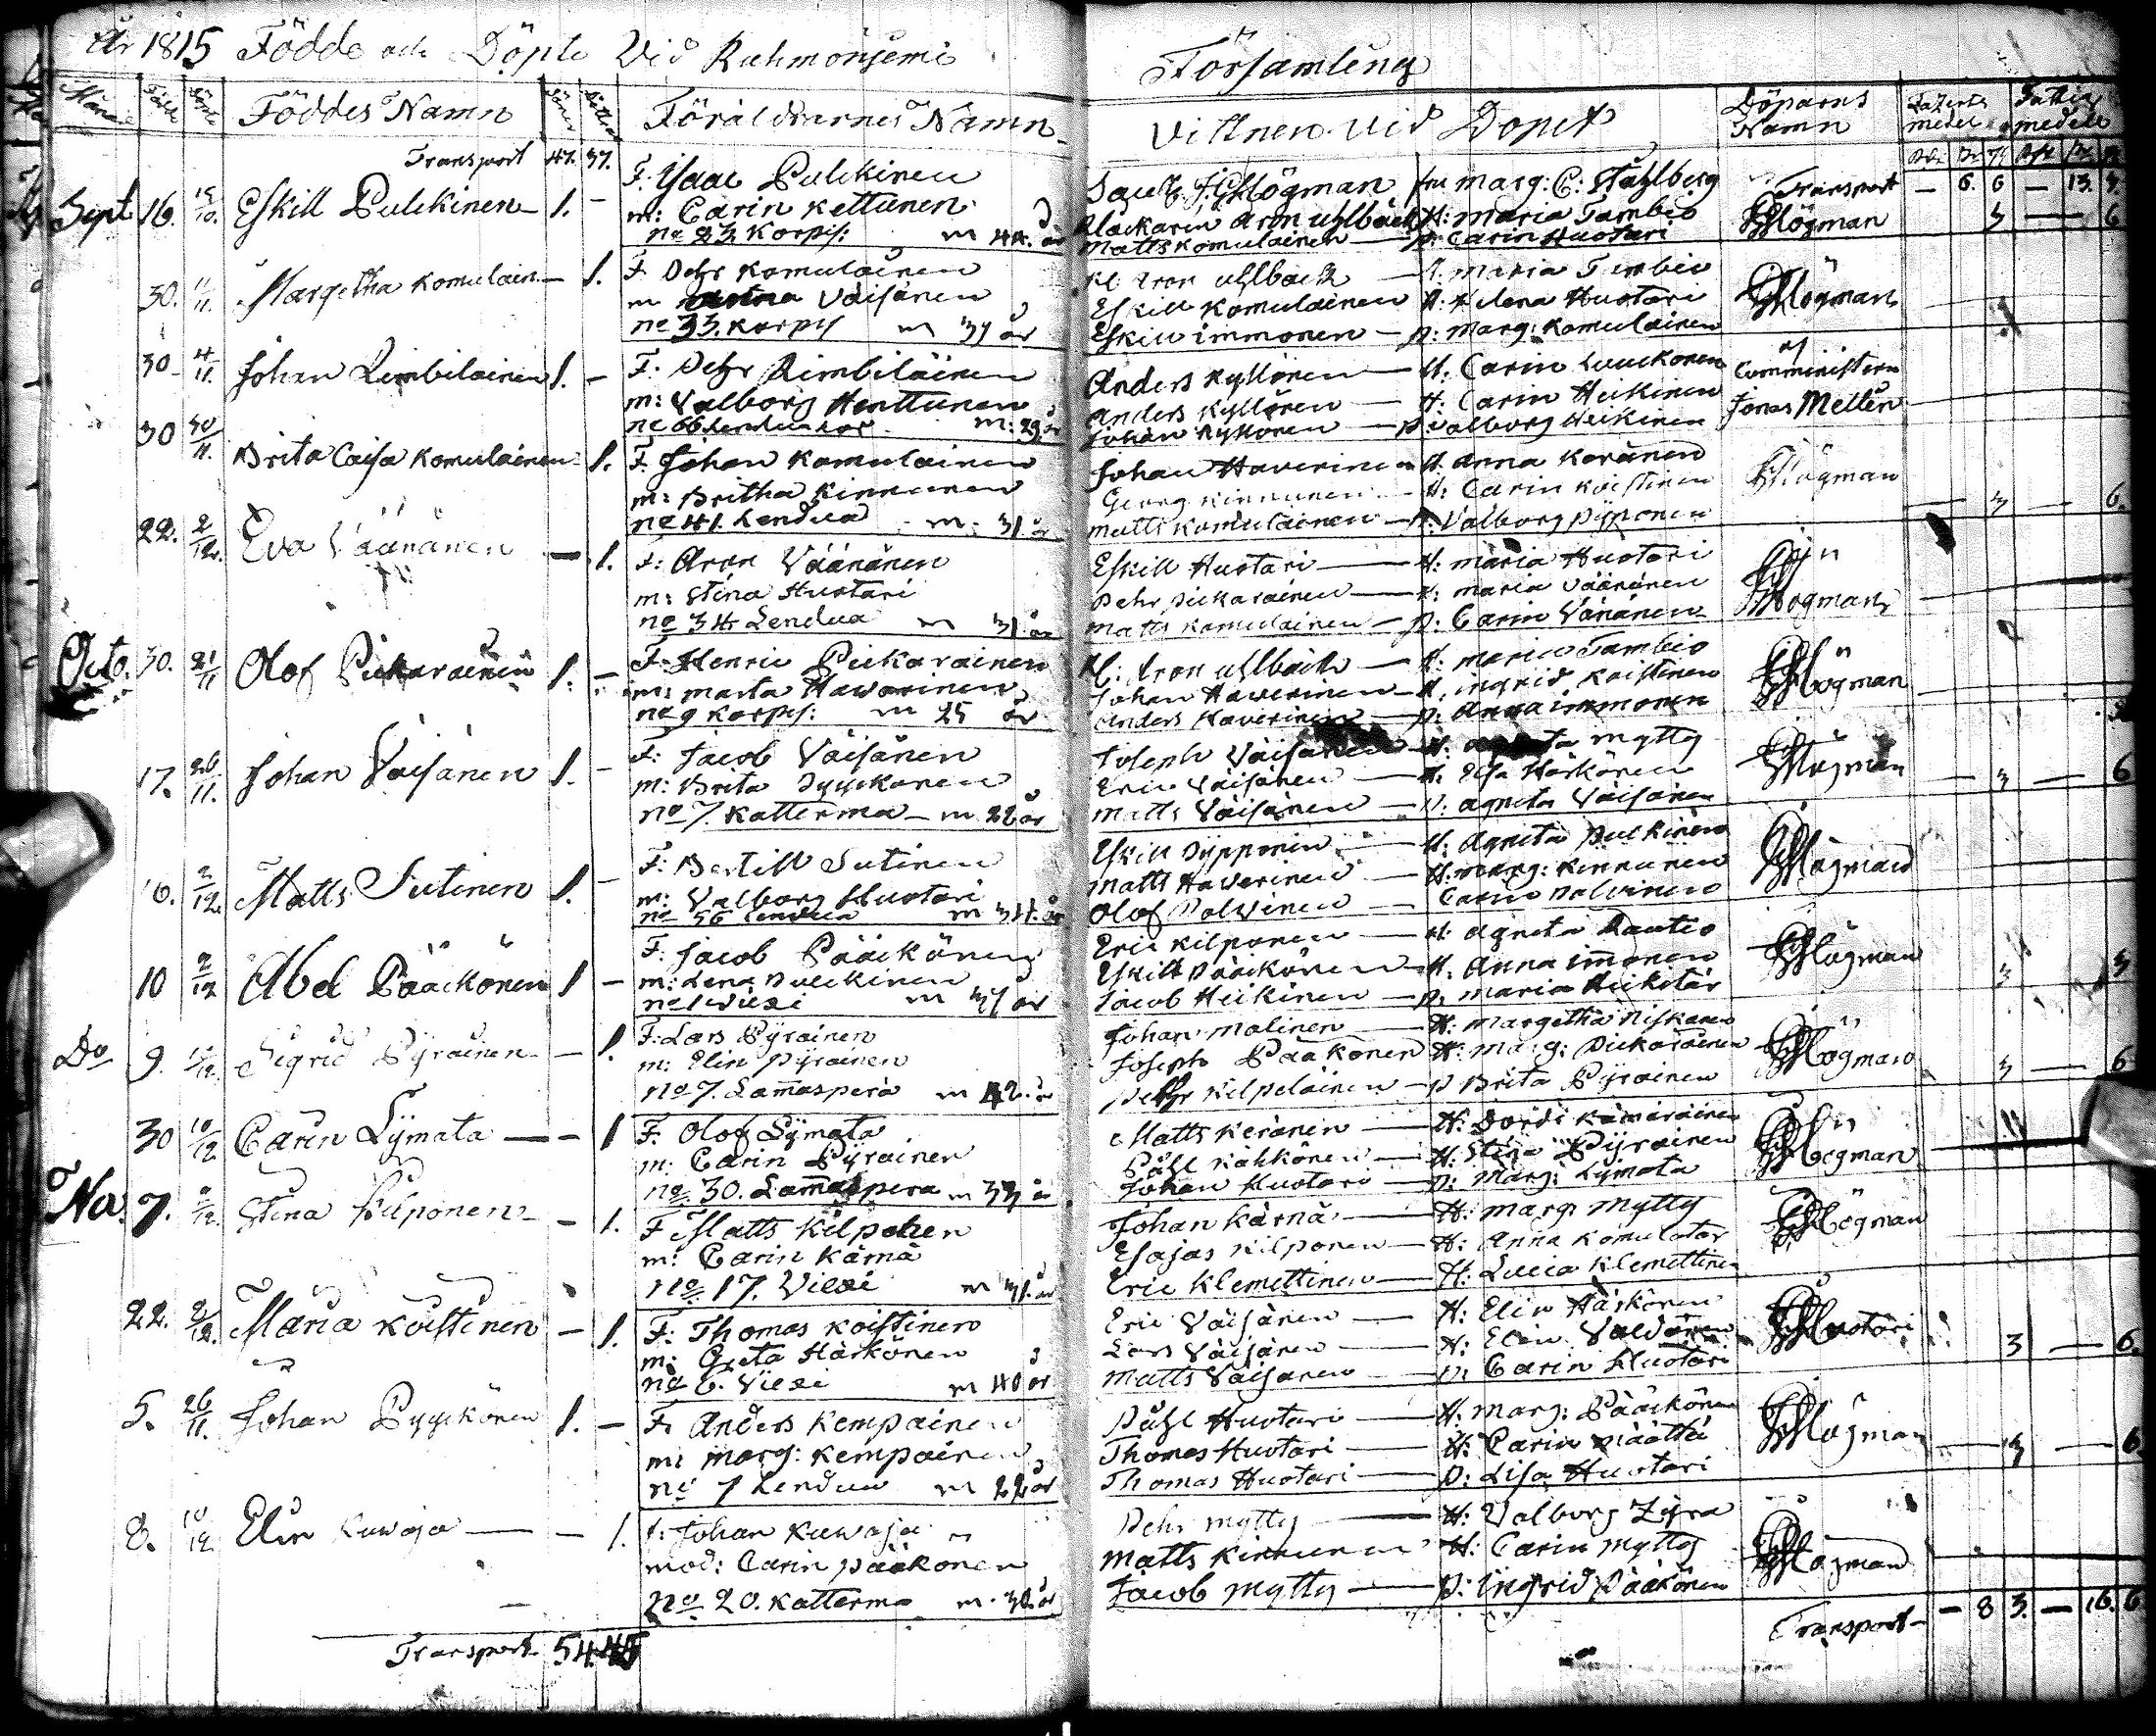 År 1815 Födde och Döpte Vid Kuhmoniemi
Församling
Månd Födde Döpte Föddes Namn Söner Döttrar Föräldrarnes Namn
Vittnen vid Dopet Döparns Namn medel Fattig medel
Transport 47. 37.
Transport — 6. 6 — 13.
Sept 16. Eskill Pulckinen 1. —
F: Isaac Pulckinen
m: Carin Kettunen
no 23 Korpis: m 44. år
J: Högman fru Marg: C: Ståhlberg
Klåckarin Aron Uhlbäck H: Maria Tambio
Matts Komulainen — p: Carin Huotari
Högman 3 — 6
30. 11/11. Margetha Komulain — 1.
F. Pehr Komulainen
m Väisänen
no 33. Korpis m 37 år
Kl Aron Uhlbäck — H. Maria Tambio
Eskill Komulainen H. Helena Huotari
Eskill Immonen — p: Marg: Komulainen
Högman
30 4/11. Johan Rimbiläinen 1. —
F: Pehr Rimbiläinen
m: Valborg Henttunen
no 66 Lendua m: 29 år
Anders Kyllönen — H. Carin Luuckonen
Anders Kyllönen — H: Carin Heikinen
Johan Kyllönen — p Valborg Heikinen
af Comministern
Jonas Mellén
30 30/11. Brita Caisa Komulainen 1.
F. Johan Komulainen
m: Britha Kinnunen
no 41. Lendua m: 31. år
Johan Haverinen H. Anna Keränen
Georg Kinnunen — H: Carin Koistinen
Matts Komulainen — p. Valborg Pyponen
Högman — 3 — 6.
22. 2/12. Eva Väänänen — 1.
F: Aron Väänänen
m: Stina Huotari
no 34 Lendua m 31. år
Eskill Huotari — H: Maria Huotari
Pehr Pickarainen — H: Maria Väänänen
Matts Komulainen — p: Carin Vänänen
Högman
Octo. 30. 21/11 Olof Pickarainen 1. —
F: Henric Pickarainen
m: Marta Hawerinen
no 9 Korpis: m 25 år
Kl: Aron Uhlbäck — H: Maria Tambio
Johan Hawerinen — H. Ingrid Koistinen
Anders Haverinen — p: Anna Immonen
Högman
17. 26/11. Johan Väisänen 1. —
F: Jacob Väisänen
m: Brita Pyyckönen
no 7. Katterma — m 22 år
Joseph Väisänen H: Agneta Mytty
Eric Väisänen — H. Elsa Härkönen
Matts Väisänen — p. Agneta Väisänen
Högman — 3 — 6
16. 2/12. Matts Sutinen 1. —
F: Bertill Sutinen
m: Valborg Huotari
no 56 Lendua m 34. år
Eskill Pypponen — H: Agneta Pulkinen
Matts Haverinen — H. Marg: Kinnunen
Olof Polvinen — Carin Polvinen
Högman
10 2/12 Abel Pääckönen 1 —
F: Jacob Pääckönen
m: Lena Pulckinen
no 1 Viexi m 37 år
Eric Kilponen — H: Agneta Rautio
Eskill Pääckönen — H. Anna Immonen
Jacob Heikinen — p. Maria Heikitär
Högman 3 3
Do 9. Sigrid Pyrainen — 1.
F: Lars Pyrainen
m: Elin Pyrainen
no 7. Lammasperä m 42. år
Johan Malinen — H: Margetha Niskanen
Joseph Pääkönen H: Marg: Pickarainen
Pehr Kilpeläinen — p Brita Pyrainen
Högman 3 — 6
30 10/12 Carin Lymata — — 1
F. Olof Lymata
m: Carin Pyrainen
no 30. Lammaspera m 33 år
Matts Keränen — H: Dordi Kämäräinen
Påhl Kähkönen — H: Stina Pyrainen
Johan Huotari — p: Marg: Lymata
Högman
No. 7. Stina Kilponen — — 1.
F Matts Kilponen
m: Carin Kärnä
no 17. Viexi m 31. år
Johan Kärnä — H: Marg: Mytty
Esajas Kilponen — H: Anna Komulatar
Eric Klemettinen — H: Lucia Klemettinen
Högman
22. 2/12. Maria Koistinen — 1.
F: Thomas Koistinen
m: Greta Härkönen
no 6. Viexi m 40 år
Eric Väisänen — H: Elin Härkönen
Lars Väisänen — H: Elin
Matts Väisänen — p. Carin Huotari
3 — 6.
5. 26/11. Johan Pyyckönen 1. —
F. Anders Kempainen
m: Marg: Kempainen
no 7 Lendua m 22 år
Påhl Huotari — H: Marg: Pääckönen
Thomas Huotari — H: Carin Määttä
Thomas Huotari — p: Lisa Huotari
Högman — 3 — 6
8. 10/12 Elin Kuwaja — — 1.
F: Johan Kuwaja
mod: Carin Pääkönen
no 20. Katterma m. 30. år
Pehr Mytty — H: Valborg
Matts Kinnunen H: Carin Mytty
Jacob Mytty — p: Ingrid Pääkönen
Högman
Transport 54. 45
Transport — 8 3. — 16. 6